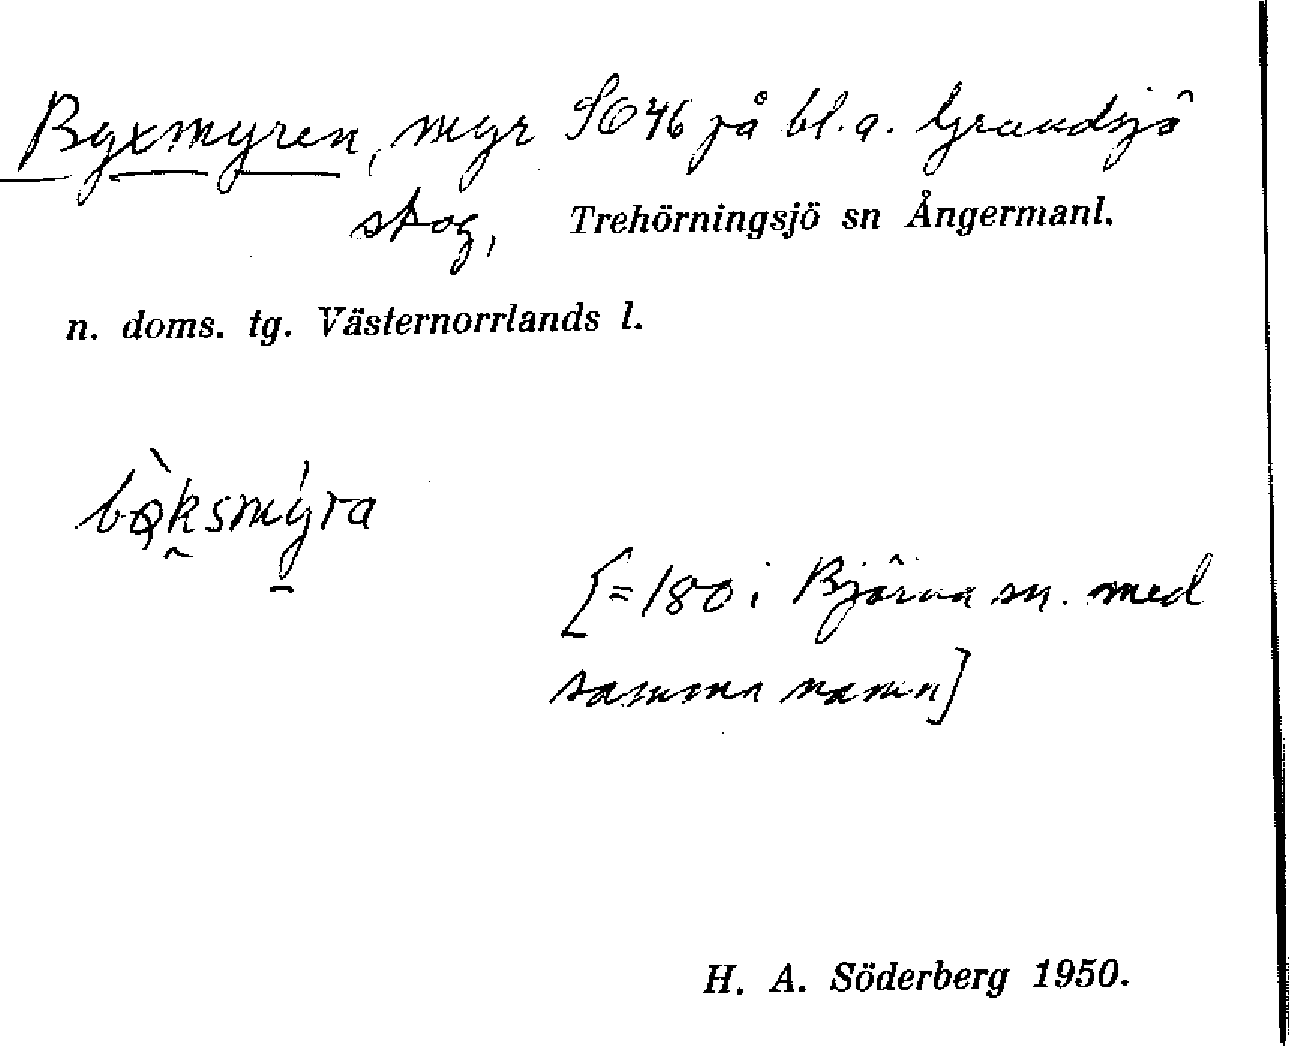 Byxmyren, myr SO46 på bl.a. Grundsjö
skog, Trehörningsjö sn Ångermanl.
n. doms. tg. Västernorrlands l.
bøksmyra
[=180 i Björna sn. med
samma namn]
H. A. Söderberg 1950.